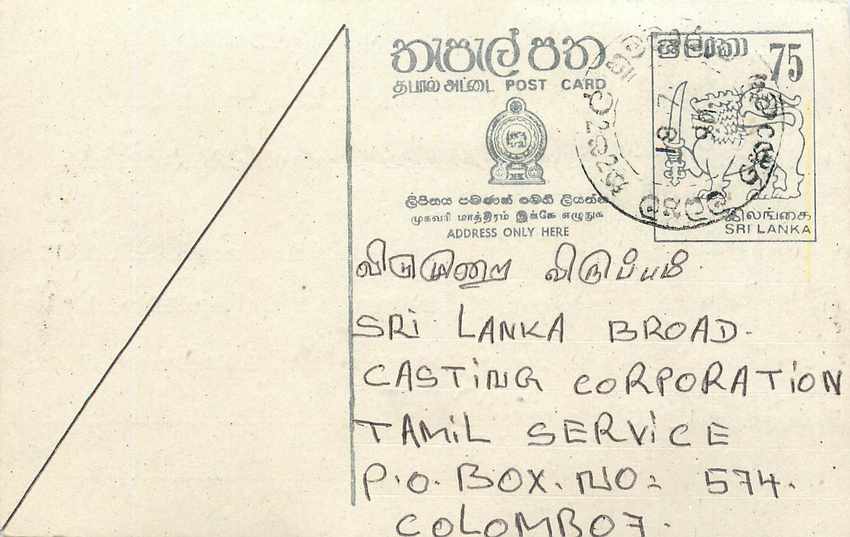 තැපැල් පත
தபால் அட்டை POST CARD
ලිපිනය පමණක් මෙහි ලියන්න
முகவரி மாத்திரம் இங்கே எழுதுக
ADDRESS ONLY HERE
ශ්‍රී ලංකා 75
இலங்கை
SRI LANKA
விடுமுறை விருப்பம்.
SRI LANKA BROAD.
CASTING CORPORATION
TAMIL SERVICE
P.O. BOX. NO: 574.
COLOMBO 7.